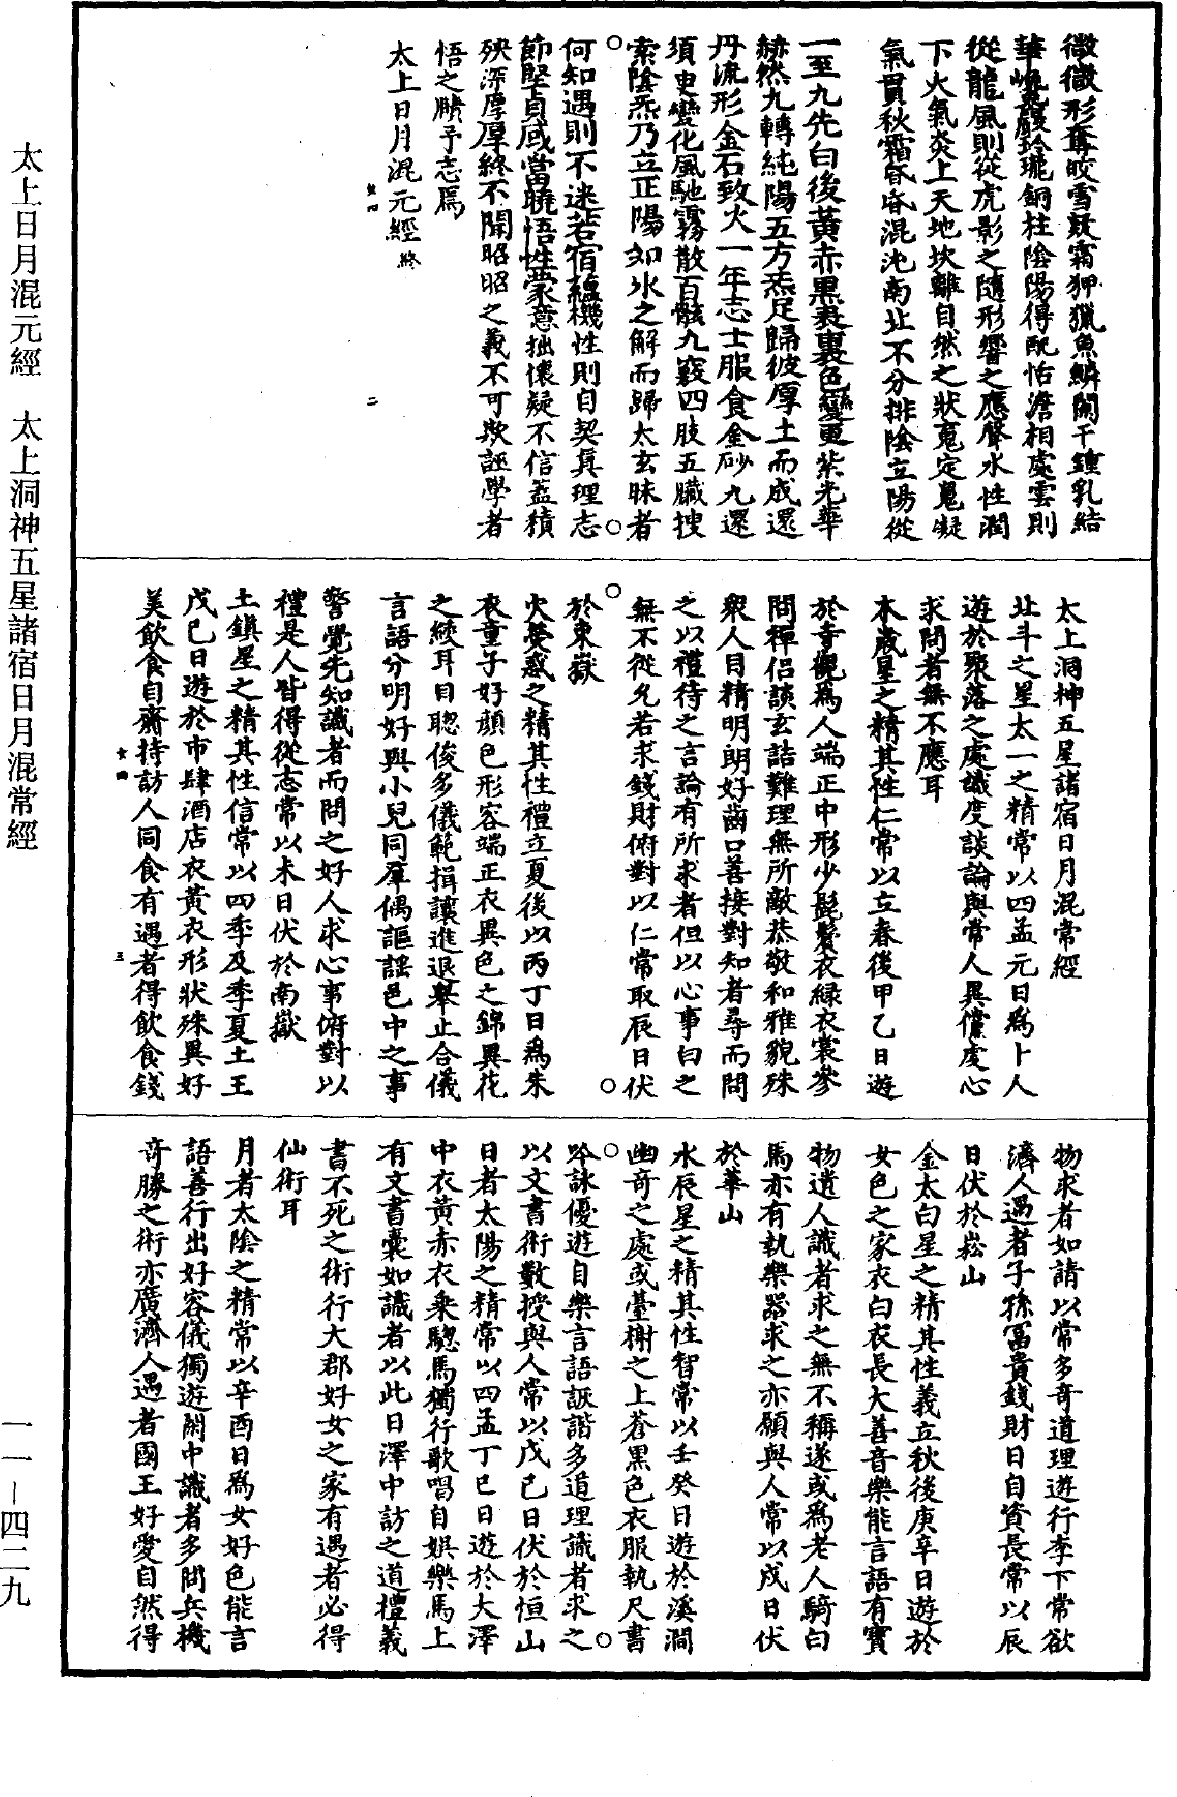 微微形奪皎雪敷霜狎獵魚鱗闌干鍾乳結
華巍巖玲瓏銅柱陰陽得配恬澹相處雲則
從龍風則從虎影之隨形響之應聲水性潤
下火氣炎上天地坎離自然之狀魂定魄凝
氣貫秋霜昏昏混沌南北不分排陰立陽從
一至九先白後黃赤黑表裏色變更紫光華
赫然九轉純陽五方炁足歸彼厚土而成還
丹流形金石致火一年志士服食金砂九還
須臾變化風馳霧散百骸九竅四肢五臟搜
索陰炁乃立正陽如氷之解而歸太玄昧者
何知遇則不迷若宿蘊機性則自契真理志
節堅貞咸當曉悟性蒙意拙懷疑不信蓋積
殃深厚厚終不聞昭昭之義不可欺誣學者
悟之勝予志焉
太上日月混元經終
二
太上洞神五星諸宿日月混常經
北斗之星太一之精常以四孟元日爲卜人
遊於聚落之處識度談論與常人異儻虔心
求問者無不應耳
木歲星之精其性仁常以立春後甲乙日遊
於寺觀爲人端正中形少髭鬢衣綠衣裳參
問禪侶談玄詰難理無所敵恭敬和雅貌殊
衆人目精明朗好齒口善接對知者尋而問
之以禮待之言論有所求者但以心事白之
無不從允若求錢財俯對以仁常取辰日伏
於東嶽
火熒惑之精其性禮立夏後以丙丁日爲朱
衣童子好顏色形容端正衣異色之錦異花
之綾耳目聰俊多儀範揖讓進退舉止合儀
言語分明好與小兒同羣偶謳謡邑中之事
警覺先知識者而問之好人求心事俯對以
禮是人皆得從志常以未日伏於南嶽
土鎮星之精其性信常以四季及季夏土王
戊己日遊於市肆酒店衣黃衣形狀殊異好
美飲食自齋持訪人同食有遇者得飲食錢
三
物求者如請以常多奇道理遊行李下常欲
濟人遇者子孫冨貴錢財日自資長常以辰
日伏於崧山
金太白星之精其性義立秋後庚辛日遊於
女色之家衣白衣長大善音樂能言語有寳
物遺人識者求之無不稱遂或爲老人騎白
馬亦有執樂器求之亦願與人常以戌日伏
於華山
水辰星之精其性智常以壬癸日遊於溪澗
幽奇之處或臺榭之上蒼黑色衣服執尺書
吟詠優遊自樂言語詼諧多道理識者求之
以文書術數授與人常以戊己日伏於恒山
日者太陽之精常以四孟丁巳日遊於大澤
中衣黃赤衣乘驄馬獨行歌唱自娛樂馬上
有文書囊如識者以此日澤中訪之道禮義
書不死之術行大郡好女之家有遇者必得
仙術耳
月者太陰之精常以辛酉日爲女好色能言
語善行出好容儀獨遊閑中識者多問兵機
奇勝之術亦廣濟人遇者國王好愛自然得
太上日月混元經　太上洞神五星諸宿日月混常經
一一－四二九